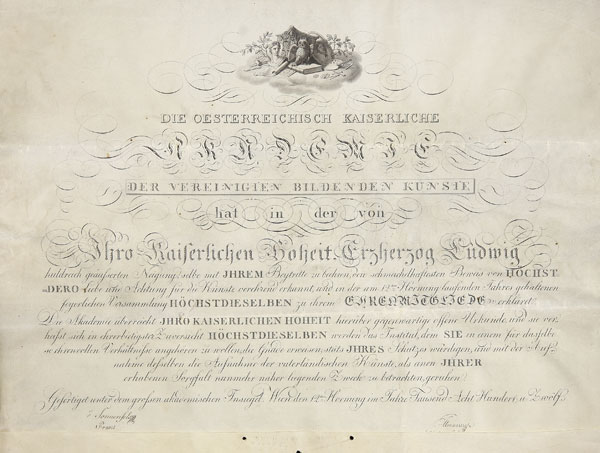 DIE OESTERREICHISCH KAISERLICHE
AKADEMIE
DER VEREINIGTEN BILDENDEN KÜNSTE
hat in der von
Ihro Kaiserlichen Hoheit Erzherzog Ludwig
huldreich geäusserten Neigung selbe mit IHREM Beytritte zu beehren, den schmeichelhaftesten Beweis von HÖCHST
DERO Liebe und Achtung für die Künste verehrend erkannt, und in der am 12ten Hornung laufenden Jahres gehaltenen
feyerlichen Versammlung HÖCHSTDIESELBEN zu ihrem EHRENMITGLIEDE erklärt.
Die Akademie überreicht IHRO KAISERLICHEN HOHEIT hierüber gegenwärtige offene Urkunde, und sie ver-
HÖCHSTDIESELBEN werden das Institut, dem SIE in einem für dasselbe
so ehrenvollen Verhältnisse angehören zu wollen, die Gnade erwiesen, stäts IHRES Schutzes würdigen, und mit der Auf-
nahme desselben die Aufnahme der vaterländischen Künste, als einen IHRER
erhabenen Sorgfalt nunmehr näher liegenden Zweck zu betrachten, geruhen.
Gefertiget unter dem grossen akademischen Insiegel Wien den 12ten Hornung im Jahre Tausend Acht Hundert u. Zwölf.
Sonnenfels